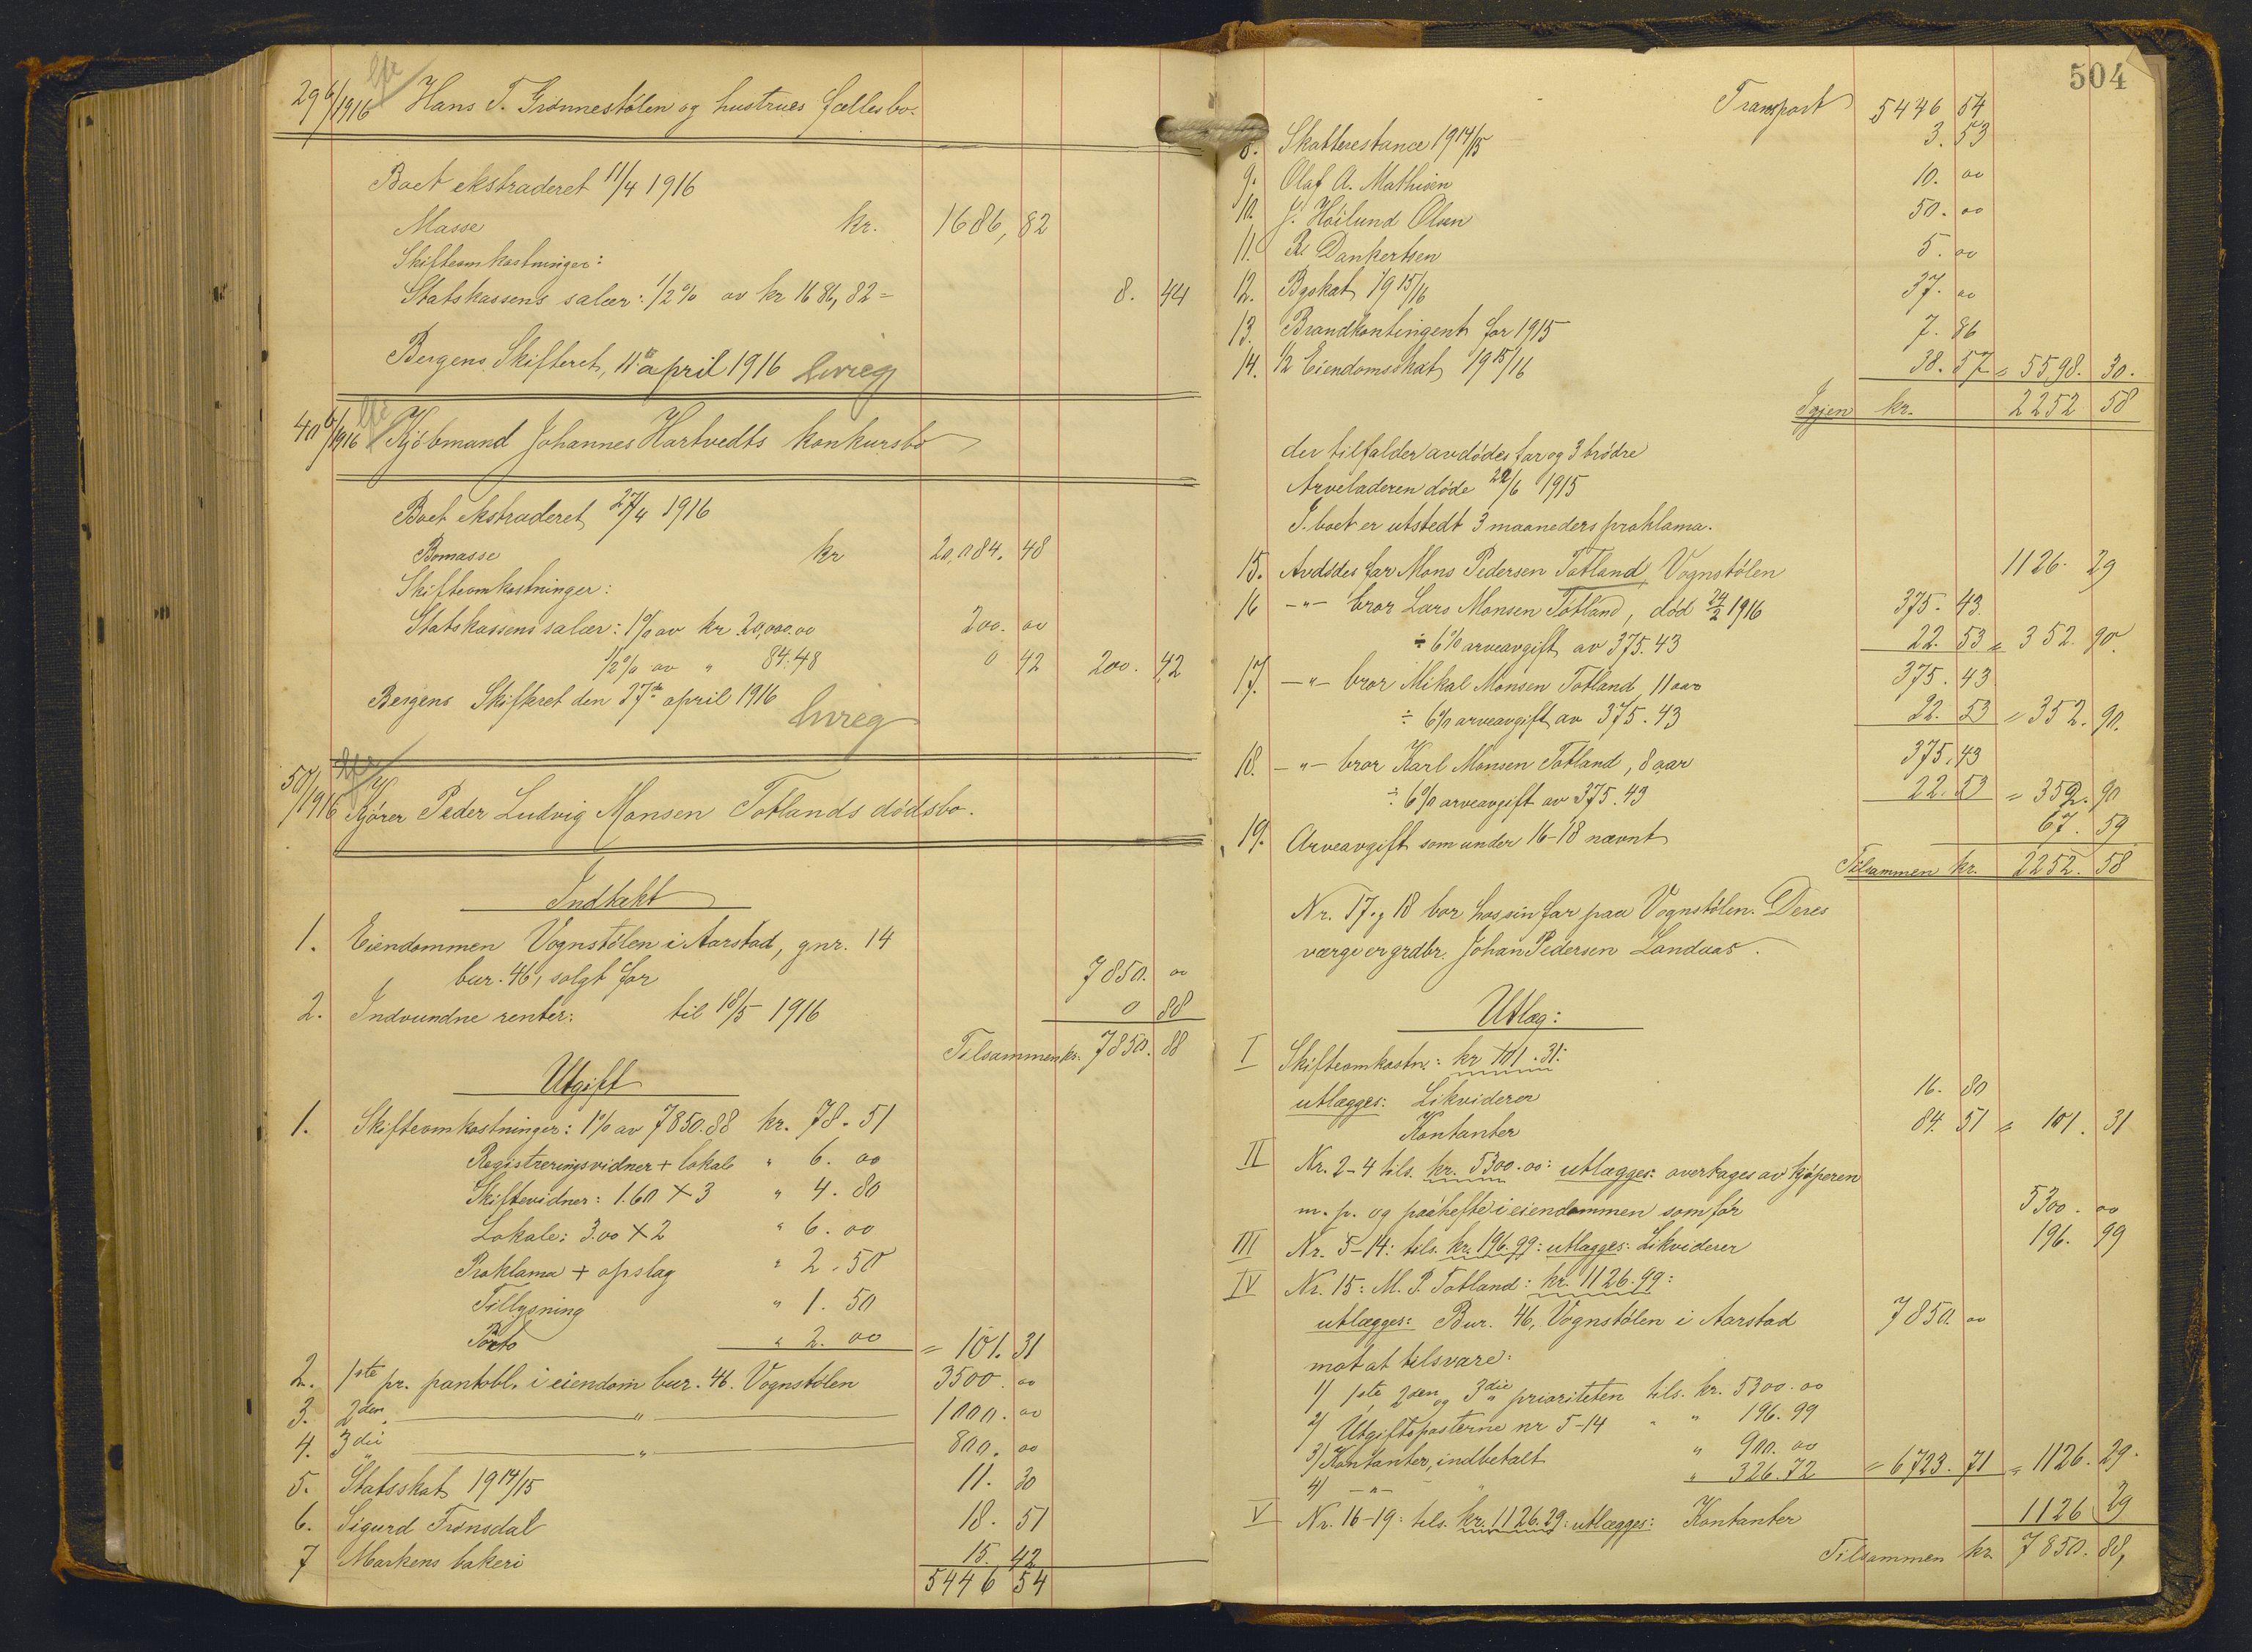 29 6/1916 Hans T. Grønnestølen og hustrues fællesbo.
Boet ekstraderet 11/4 1916
Masse kr. 1686,82
Skifteomkostninger:
Statskassens salær: 1/2% av kr 1686,82 = 8. 44
Bergens Skifteret, 11te april 1916
40 6/1916 Kjøbmand Johannes Hartvedts konkursbo
Boet ekstraderet 27/4 1916
Bomasse kr 20,084. 48
Skifteomkostninger:
Statskassens salær: 1% av kr 20,000.00 200. 00
1/2% av " 84.48 0 42 200. 42
Bergens Skifteret den 27de april 1916
50/1916 Kjører Peder Ludvig Monsen Totlands dødsbo.
Indtekt
1. Eiendommen Vognstølen i Aarstad, gnr. 14
bnr. 46, solgt for 7850. 00
2. Indvundne renter: til 18/5 1916 0 88
Tilsammen kr. 7850. 88
Utgift
1. Skifteomkostninger: 1% av 7850.88 kr. 78. 51
Registreringsvidner + lokale " 6. 00
Skiftevidner: 1.60 X 3 " 4. 80
Lokale: 3.00 X 2 " 6. 00
Proklama + opslag " 2. 50
Tillysning " 1. 50
Porto " 2. 00 = 101. 31
2. 1ste pr. pantobl. i eiendom bnr. 46. Vognstølen 3500. 00
3. 2den " 1000. 00
4. 3die " 800. 00
5. Statsskat 1914/15 11. 30
6. Sigurd Frønsdal 18. 51
7 Markens bakeri 15. 42
5446 54
504
Transport 5446 54
8. Skatterestance 1914/15 3. 53
9. Olaf A. Mathisen 10. 00
10. J. Høilund Olsen 50. 00
11. R. Dankertsen 5. 00
12. Byskat 1915/16 37. 00
13. Brandkontingent for 1915 7. 86
14. 1/2 Eiendomsskat 1915/16 38. 57 = 5598. 30.
Igjen kr. 2252 58
der tilfalder avdødes far og 3 brødre
Arveladeren døde 22/6 1915
I boet er utstedt 3 maaneders proklama.
15. Avdødes far Mons Pedersen Totland, Vognstølen 1126. 29
16 -"- bror Lars Monsen Totland, død 24/2 1916 375. 43
÷ 6% arveavgift av 375.43 22. 53 = 352. 90.
17. -"- bror Mikal Monsen Totland, 11 aar 375. 43
÷ 6% arveavgift av 375.43 22. 53 = 352. 90.
18. -"- bror Karl Monsen Totland, 8 aar 375. 43
÷ 6% arveavgift av 375.43 22. 53 = 352. 90
19. Arveavgift som under 16-18 nævnt 67. 59
Tilsammen kr. 2252. 58
Nr. 17 og 18 bor hos sin far paa Vognstølen. Deres
værge er grdbr. Johan Pedersen Landaas.
Utlæg:
I Skifteomkostn.: kr 101.31:
utlægges: Likviderer 16. 80
Kontanter 84. 51 = 101. 31
II Nr. 2-4 tils. kr. 5300.00: utlægges: overtages av kjøperen
m. p. og paahefte i eiendommen som før 5300. 00
III Nr. 5-14: tils. kr. 196.99: utlægges: Likviderer 196. 99
IV Nr. 15: M. P. Totland: kr. 1126.99:
utlægges: Bnr. 46, Vognstølen i Aarstad 7850. 00
mot at tilsvare:
1) 1ste, 2den og 3die prioriteten tils. kr. 5300.00
2) Utgiftsposterne nr 5-14 " " 196.99
3) Kontanter, indbetalt " 900. 00
4) -"- " 326.72 = 6723. 71 = 1126. 29.
V Nr. 16-19: tils. kr. 1126.29: utlægges: Kontanter 1126 29
Tilsammen kr. 7850. 88,